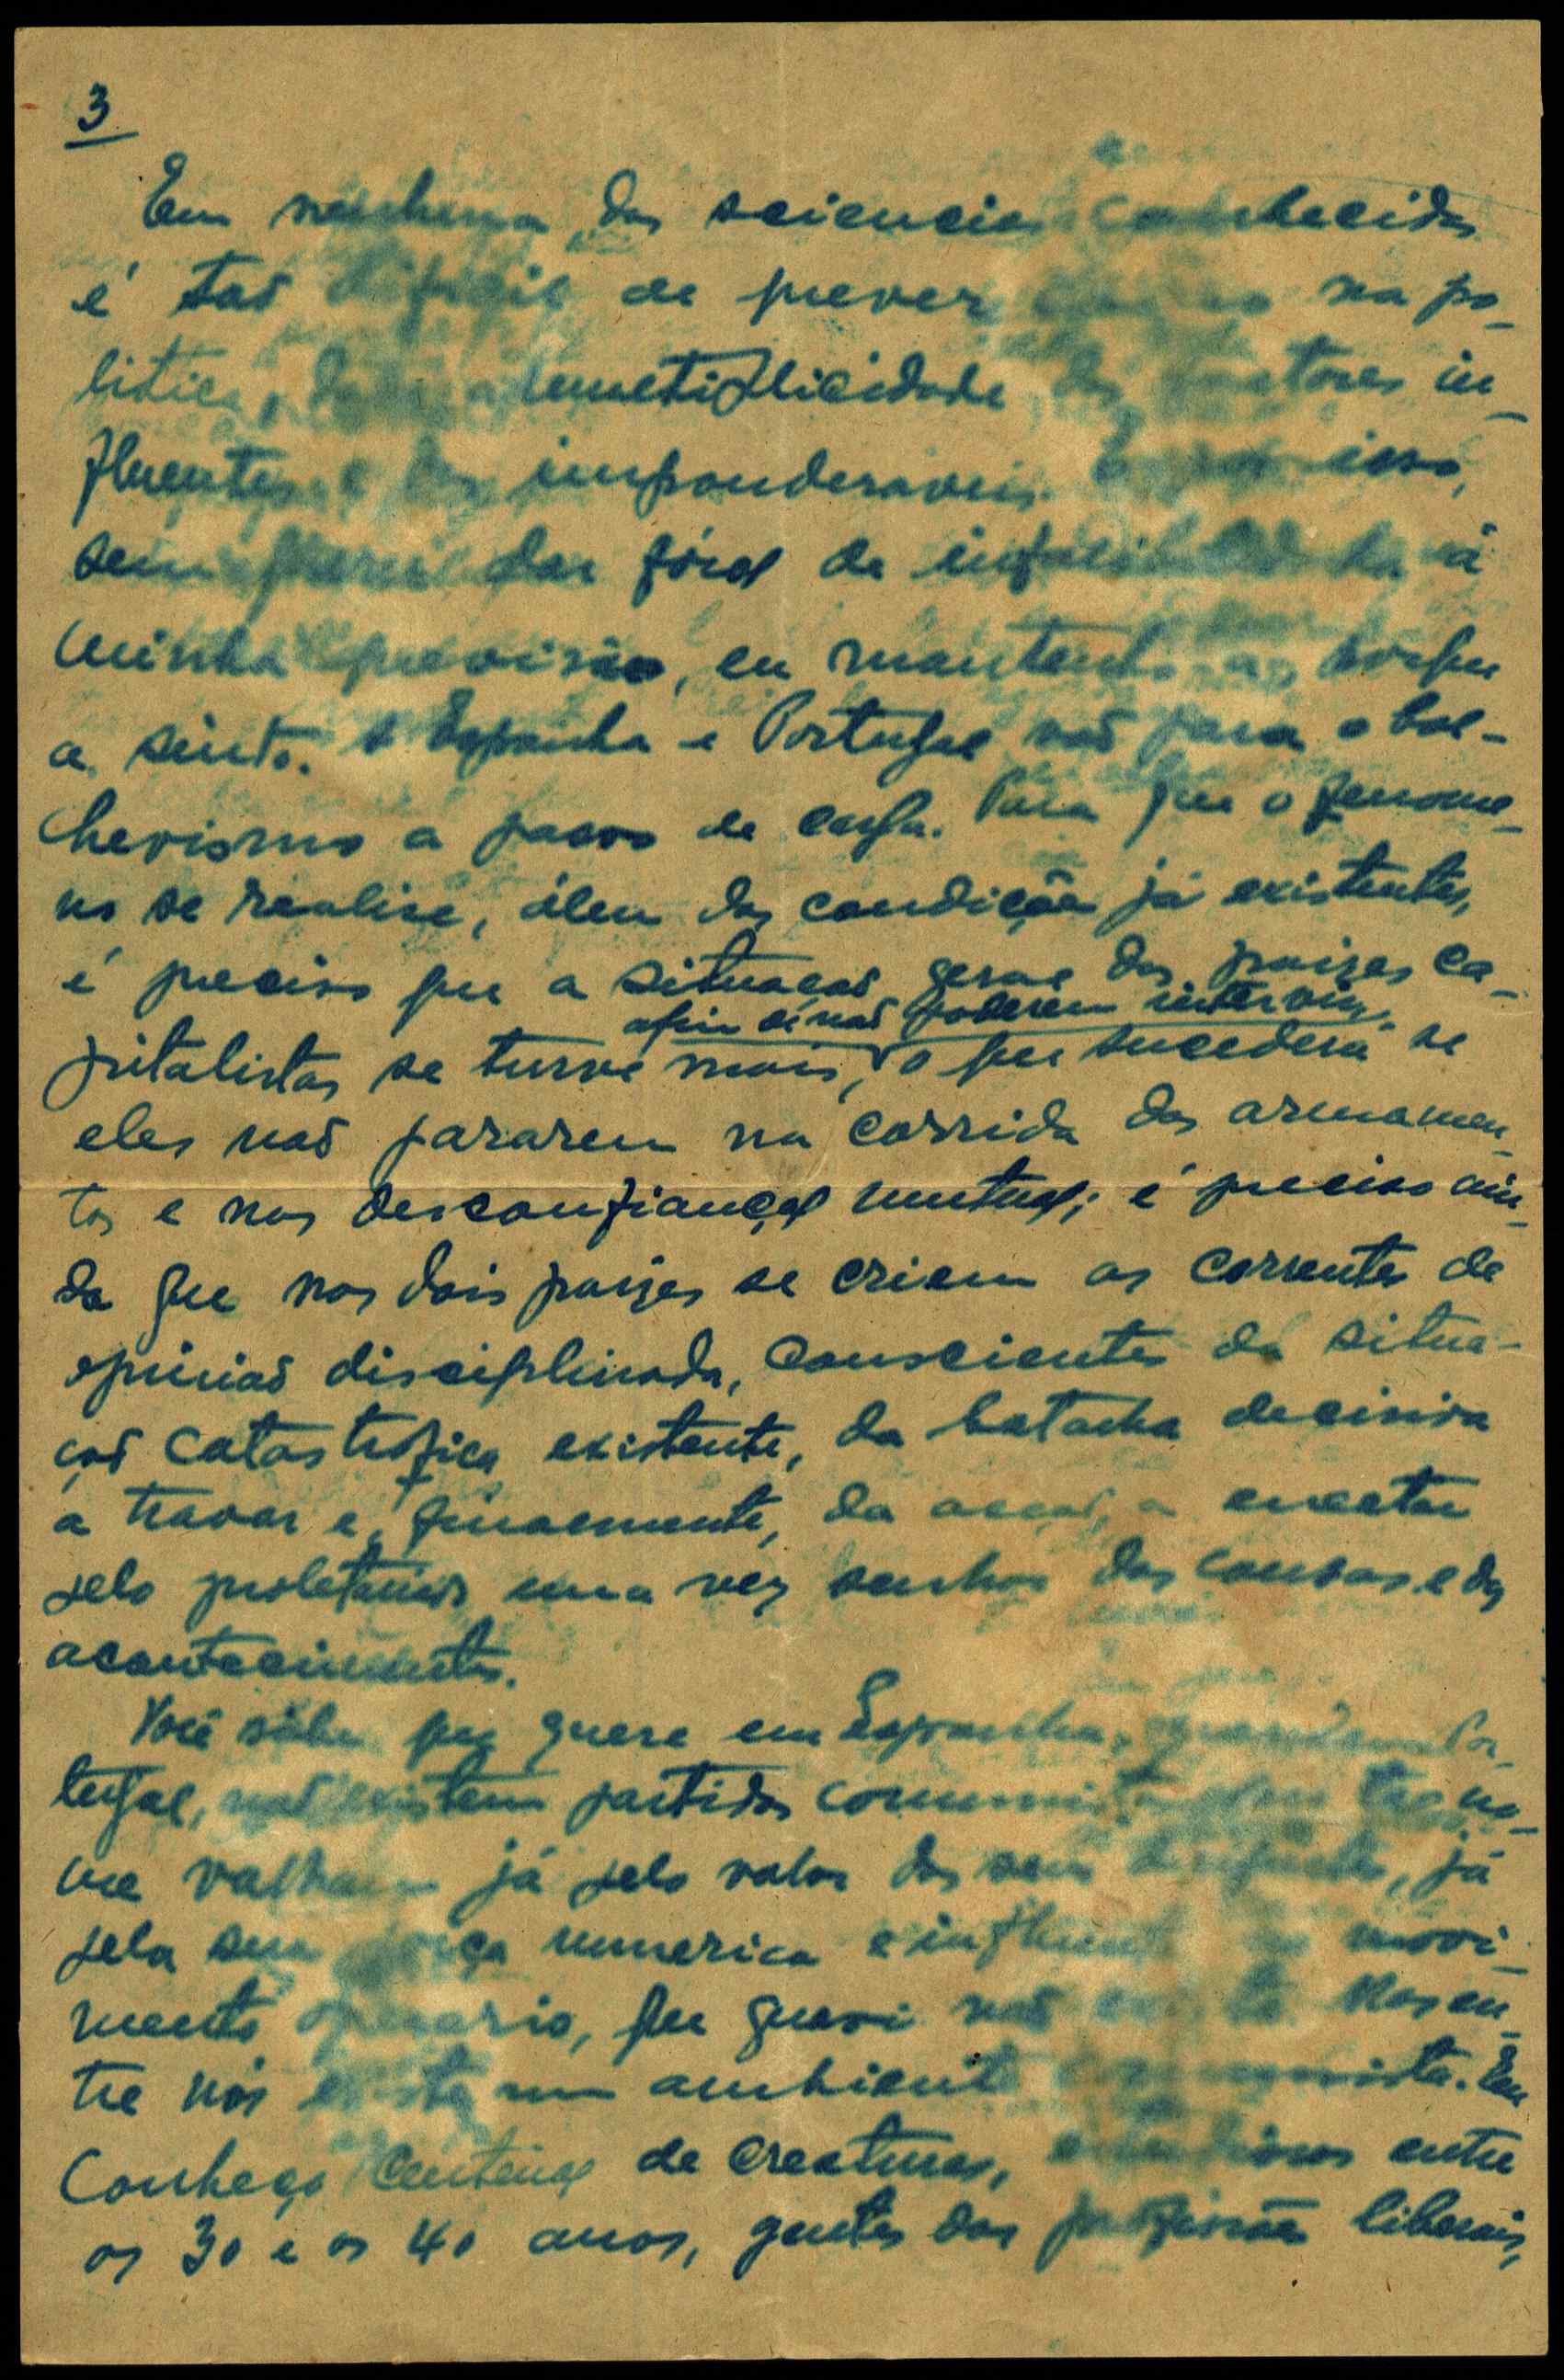 3
Em nenhuma das sciencias conhecidas
é tão dificil de prever como na po-
litica, dada a multiplicidade dos factores in-
fluentes e dos imponderaveis. E por isso,
sem dar fóros de infalibilidade á
minha previsão, eu mantenho-a porque
a sinto. A Espanha e Portugal vão para o bol-
chevismo a passos de carga. Para que o fenome-
no se realise, álem das condições já existentes,
é preciso que a situação geral dos paizes ca-
pitalistas se turve mais, afim de não poderem intervir, o que sucederá se
eles não pararem na corrida dos armamen-
tos e nas desconfianças mutuas; é preciso ain-
da que nos dois paizes se criem as correntes de
opinião disciplinada, conscientes da situa-
ção catastrofica existente, da batalha decisiva
a travar e, finalmente, da acção a encetar
pelo proletariado uma vez senhor das cousas e dos
acontecimentos.
Você sabe que quere em Espanha, quere em Por-
tugal, não existem partidos comunistas que tal no-
me valham já pelo valor dos seus dirigentes, já
pela sua força numerica e influente no movi-
mento operario, que quasi não existe. Mas en-
tre nós existe um ambiente comunista. Eu
conheço centenas de creaturas, entre
os 30 e os 40 anos, gentes das profissões liberais,